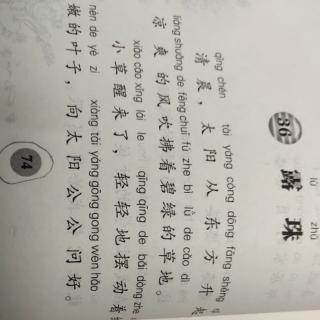 lù zhū
36 露珠
qīng chén tài yáng cóng dōng fāng shēng
清晨，太阳从东方升
liáng shuǎng de fēng chuī fú zhe bì lǜ de cǎo dì
凉爽的风吹拂着碧绿的草地。
xiǎo cǎo xǐng lái le qīng qīng de bǎi dòng zhe
小草醒来了，轻轻地摆动着
nèn de yè zi xiàng tài yáng gōng gong wèn hǎo
嫩的叶子，向太阳公公问好。
74